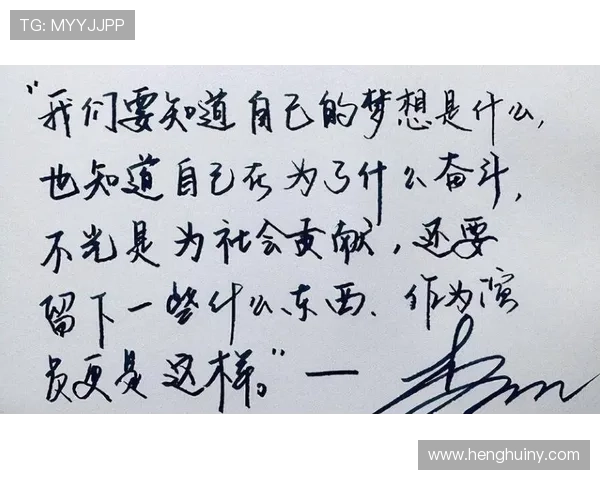 TG: MYYJJPP
“我们要知道自己的梦想是什么,
也知道自己在为了什么奋斗,
不光是为社会贡献,还要
留下一些什么东西、作为演
员更是这样。”—
www.henghuiny.com